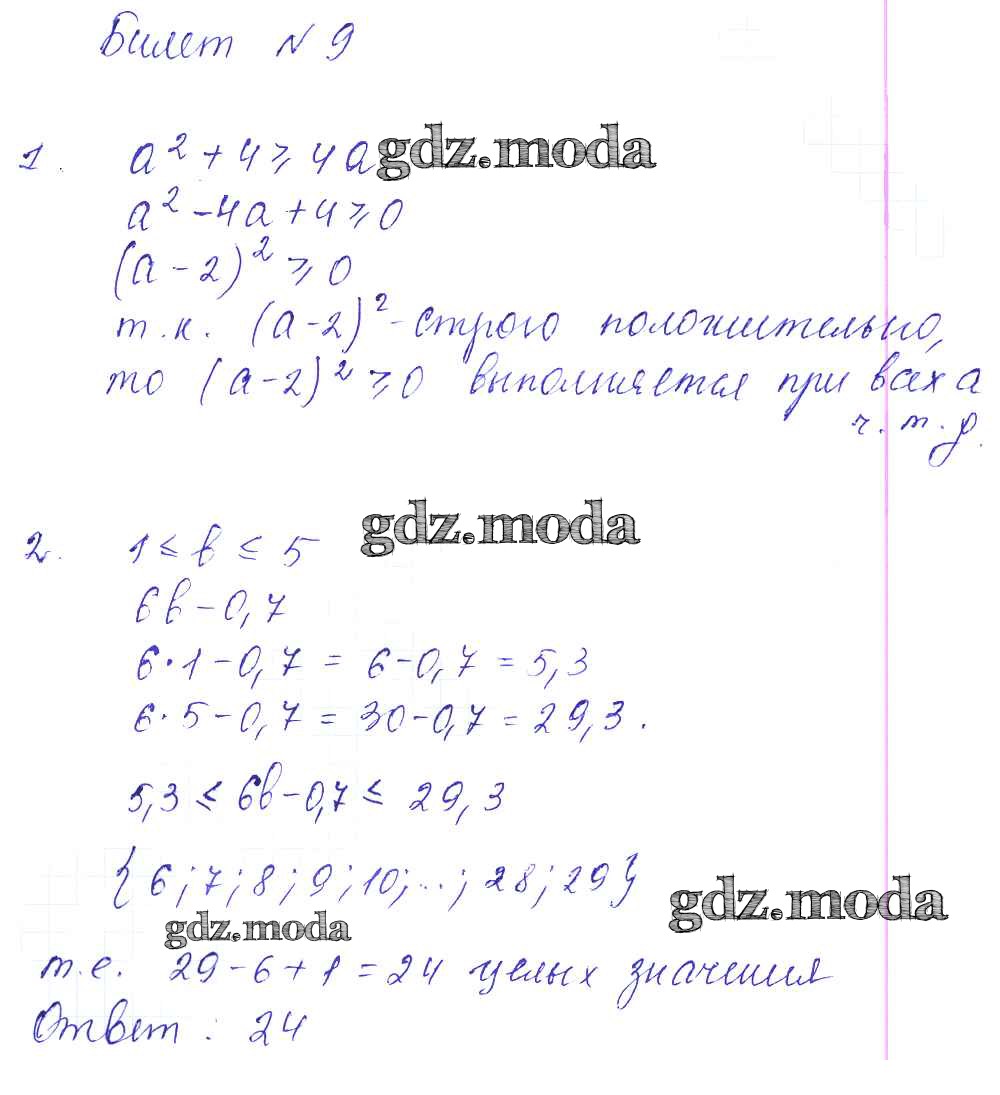 Билет № 9
1. a² + 4 ⩾ 4a gdz.moda
a² - 4a + 4 ⩾ 0
(a - 2)² ⩾ 0
т.к. (a - 2)² - строго положительно,
то (a - 2)² ⩾ 0 выполняется при всех a
ч.т.д.
gdz.moda
2. 1 ≤ b ≤ 5
6b - 0,7
6 · 1 - 0,7 = 6 - 0,7 = 5,3
6 · 5 - 0,7 = 30 - 0,7 = 29,3.
5,3 ≤ 6b - 0,7 ≤ 29,3
{6; 7; 8; 9; 10; ...; 28; 29} gdz.moda
gdz.moda
т.е. 29 - 6 + 1 = 24 целых значения
Ответ: 24